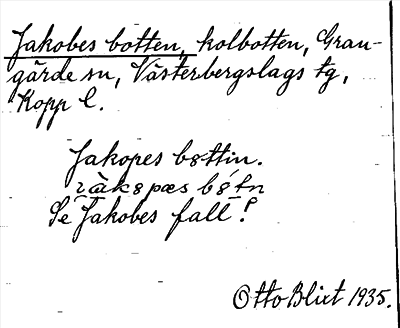 Jakobes botten, kolbotten, Gran-
gärde sn, Västerbergslags tg,
Kopp l.
Jakopes bottin.
Se Jakobes fall!
Otto Blixt 1935.